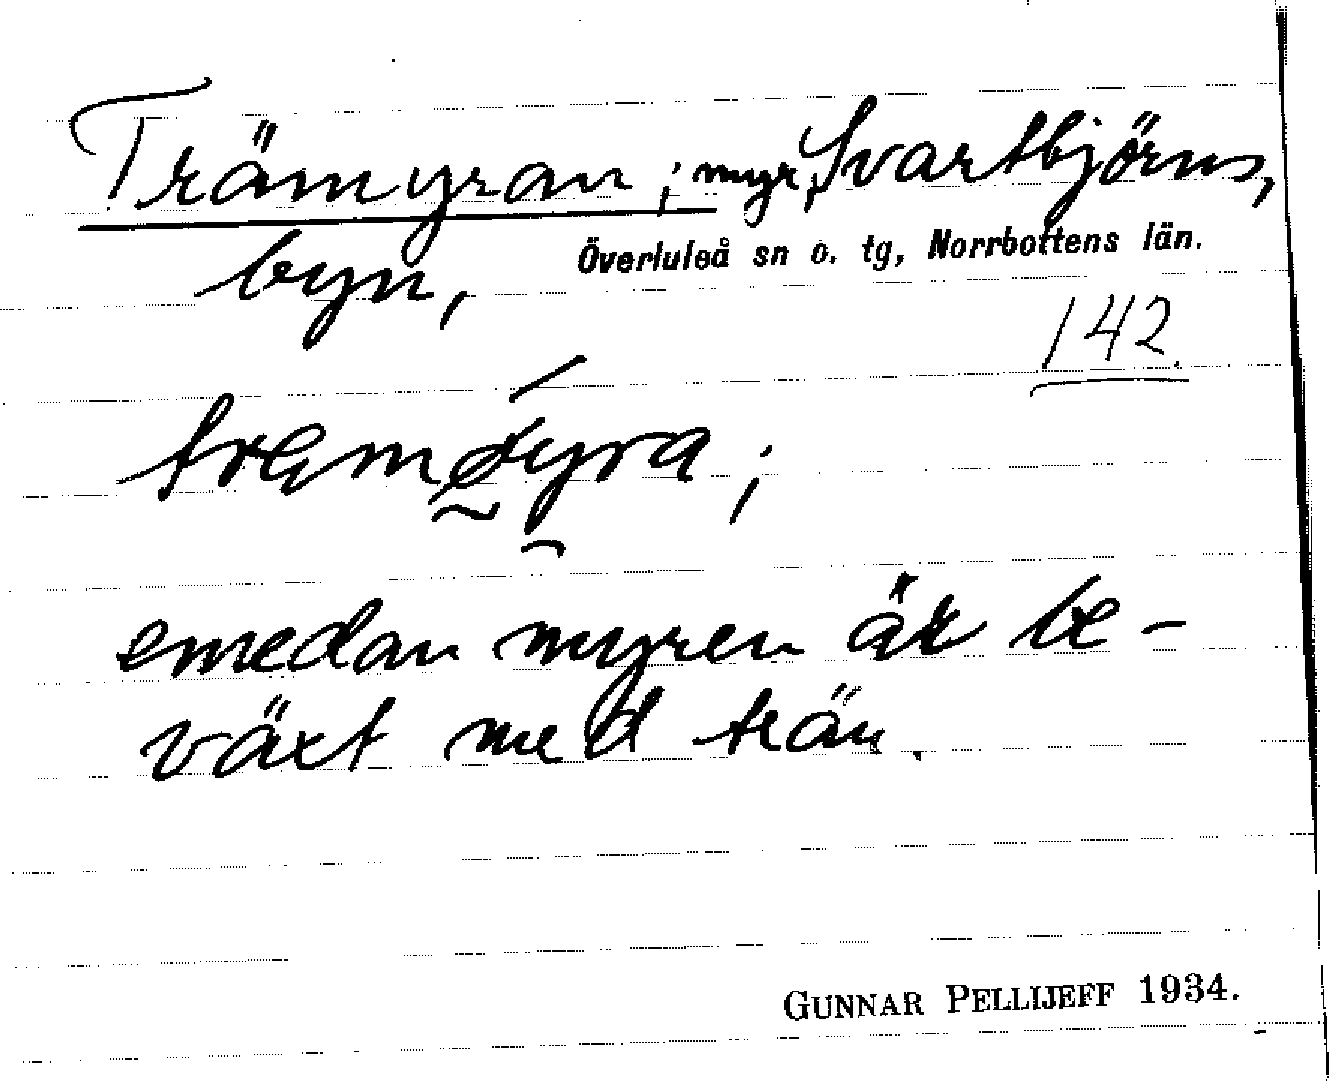 Trämyran; myr, Svartbjörns,
byn, Överluleå sn o. tg, Norrbottens län.
142.
emedan myren är be-
växt med trän.
GUNNAR PELLIJEFF 1934.